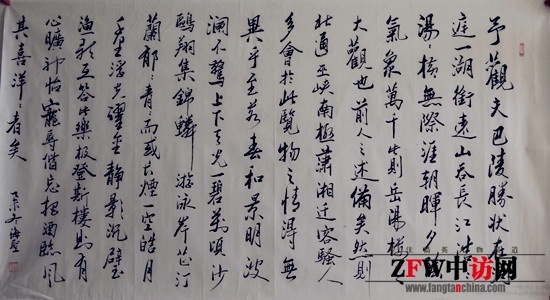 予觀夫巴陵勝狀在
庭一湖銜遠山吞長江浩
湯々橫無際涯朝暉夕
氣象萬千此則岳陽樓
大觀也前人之述備矣然則
北通巫峽南極瀟湘遷客騷人
多會於此覽物之情得無
異乎至若春和景明波
瀾不驚上下天光一碧萬頃沙
鷗翔集錦鱗游泳岸芷汀
蘭郁々青々而或長煙一空皓月
千里浮光躍金靜影沉璧
漁歌互答此樂極登斯樓有
心曠神怡寵辱偕忘把酒臨風
其喜洋々者矣
ZFW中访网
www.fangtanchina.com